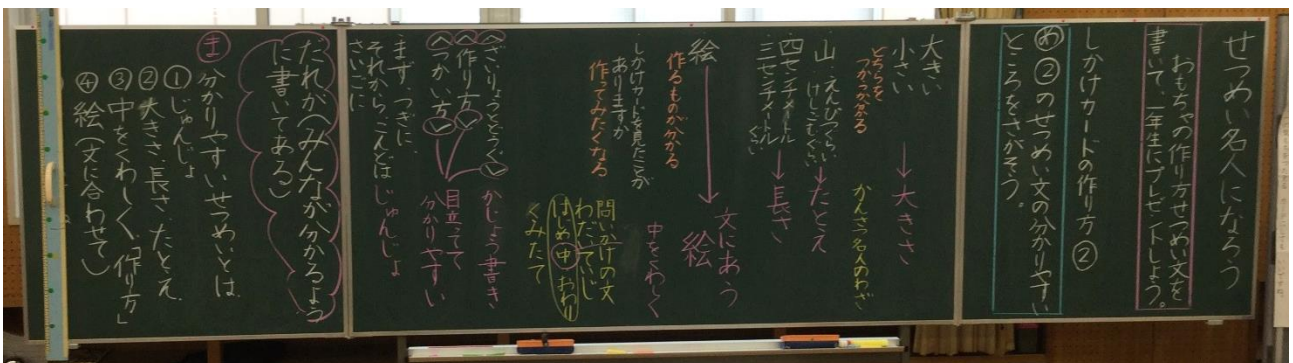 せつめい名人になろう
おもちゃの作り方せつめい文を
書いて、一年生にプレゼントしよう。
しかけカードの作り方 ②
め ②のせつめい文の分かりやすい
ところをさがそう。
大きい
小さい → 大きさ
どちらを
つかうか分かる
かんさつ名人のわざ
山…えんぴつくらい
けしごむくらい → たとえ
四センチメートル
三センチメートルくらい → 長さ
絵 → 絵
文にあう
作るものが分かる
しかけカードを見たことが
ありますか
中をくわしく
作ってみたくなる
問いかけの文
わだいていじ
はじめ 中 おわり
くみたて
〈ざいりょうとどうぐ〉
〈作り方〉
〈つかい方〉
かじょう書き
目立って
分かりやすい
まず、つぎに、
それから、こんどは
さいごに
じゅんじょ
だれが(みんなが分かるよう
に書いてある)
ま 分かりやすいせつめいとは、
①じゅんじょ
②大きさ、長さ、たとえ
③中をくわしく、「作り方」
④絵(文に合わせて)